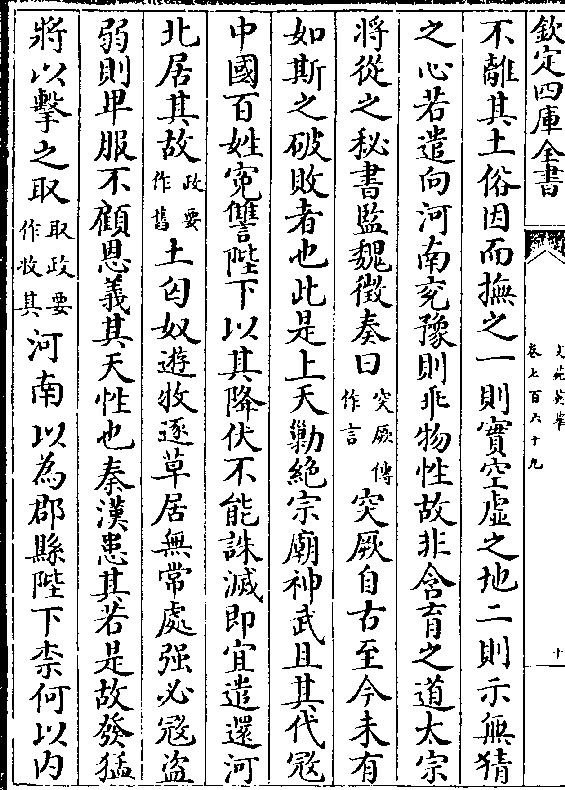 欽定四庫全書
文苑英華
卷七百六十九
十
不離其土俗因而撫之一則實空虛之地二則示無猜
之心若遣向河南兖豫則乖物性故非含育之道太宗
將從之秘書監魏徵奏曰突厥傳作言突厥自古至今未有
如斯之破敗者也此是上天勦絶宗廟神武且其代冦
中國百姓寃讐陛下以其降伏不能誅滅即宜遣還河
北居其故政要作舊土匈奴遊牧逐草居無常處强必冦盜
弱則卑服不顧恩義其天性也秦漢患其若是故發猛
將以擊之取取政要作收其河南以為郡縣陛下柰何以内